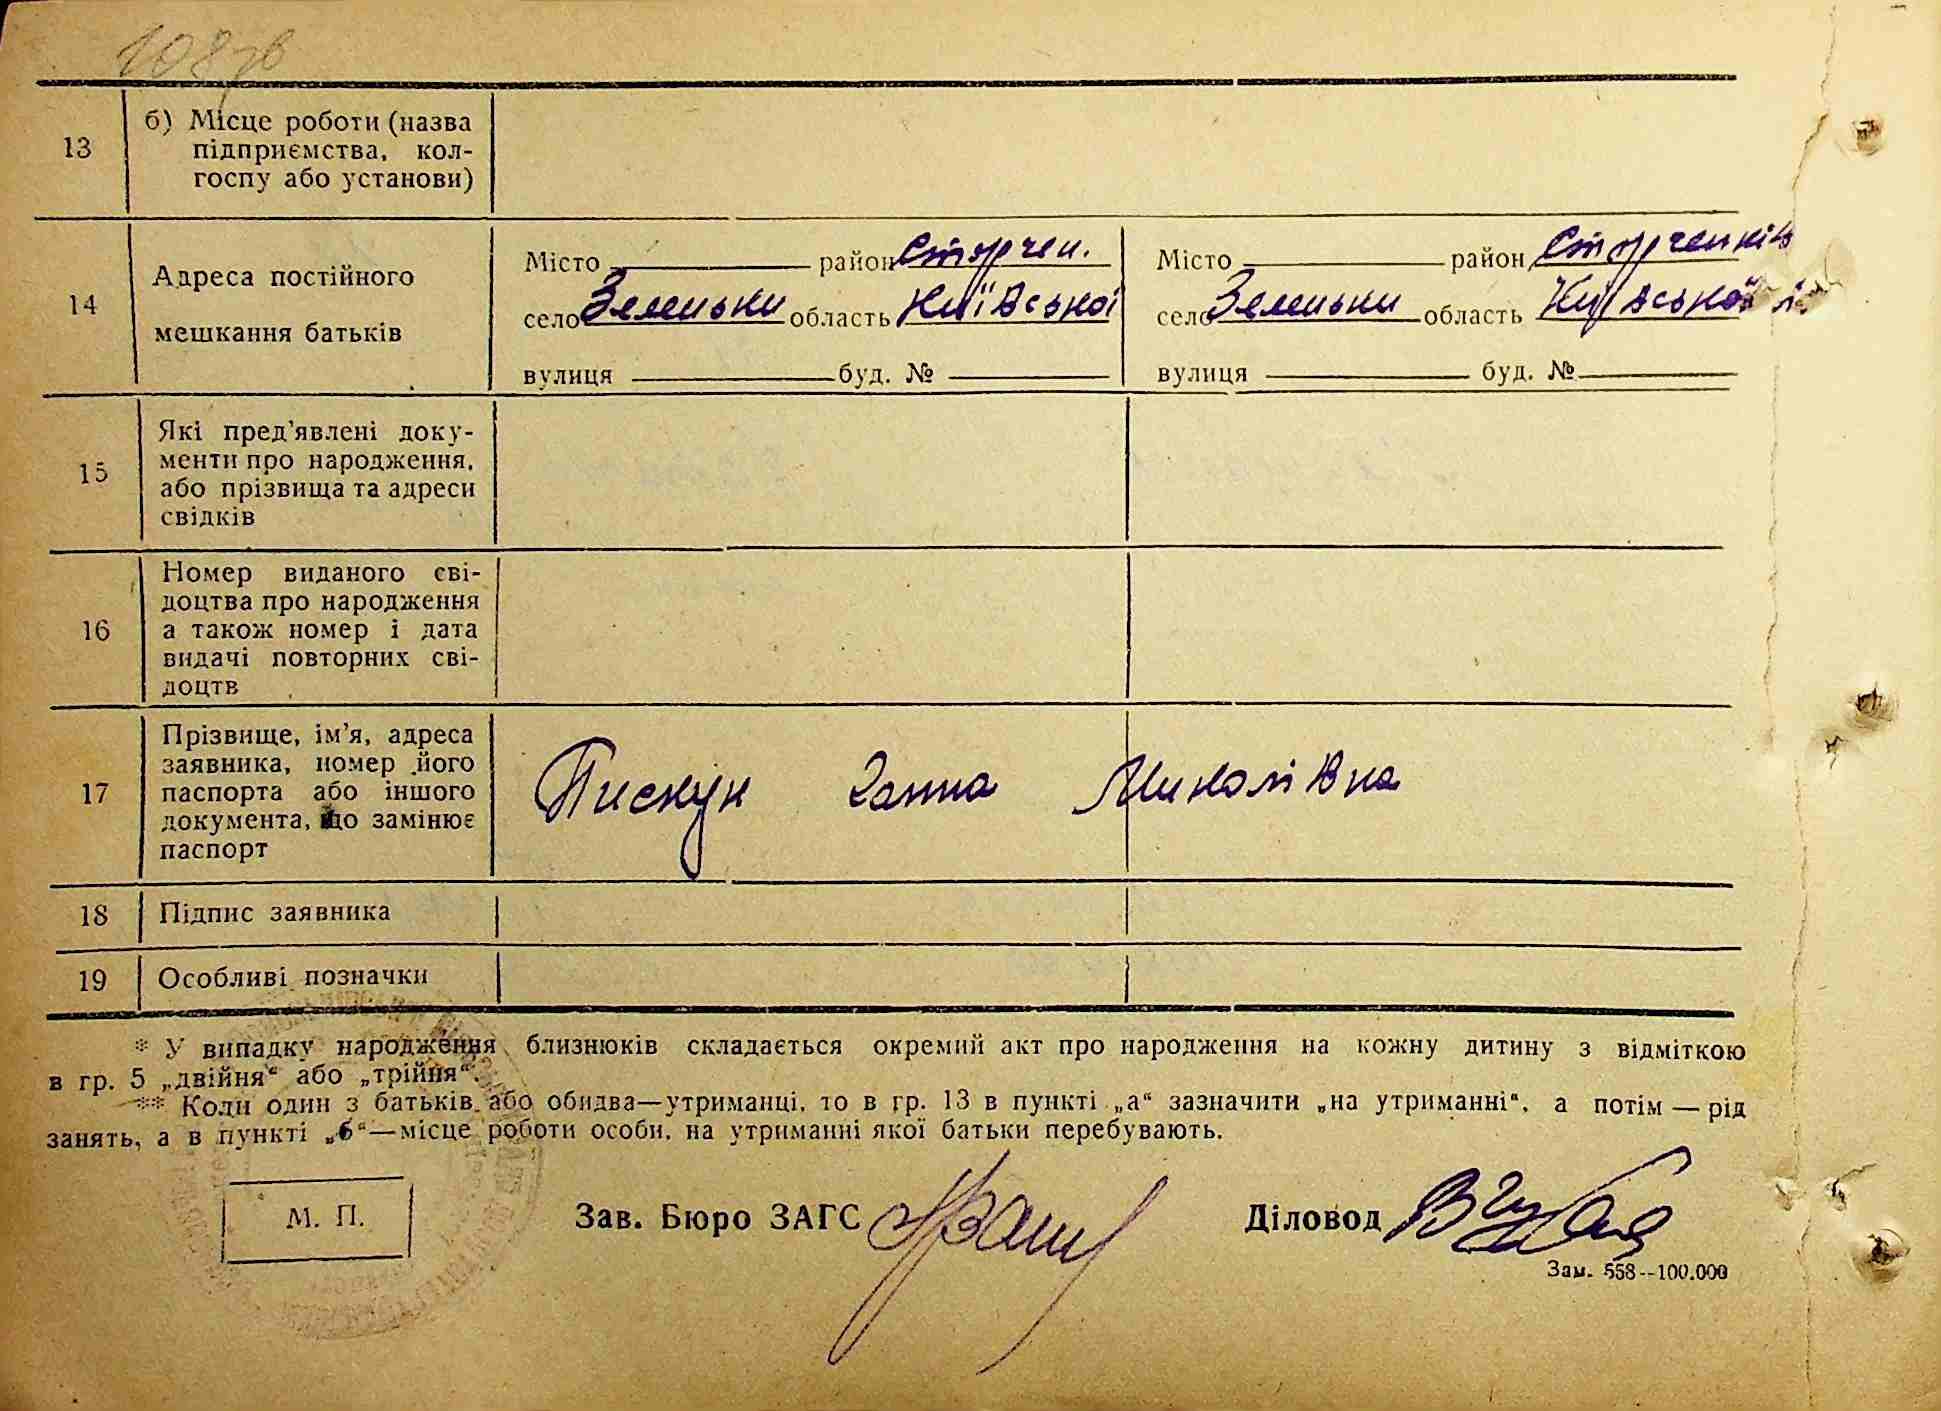 13 б) Місце роботи (назва
підприємства, кол-
госпу або установи)
14 Адреса постійного
мешкання батьків
Місто район Старчен.
село Зеленьки область Київської
вулиця буд. №
Місто район Старченків
село Зеленьки область Київської
вулиця буд. №
15 Які пред'явлені доку-
менти про народження,
або прізвища та адреси
свідків
16 Номер виданого сві-
доцтва про народження
а також номер і дата
видачі повторних сві-
доцтв
17 Прізвище, ім'я, адреса
заявника, номер його
паспорта або іншого
документа, що замінює
паспорт
Пискун Ганна Миколівна
18 Підпис заявника
19 Особливі позначки
* У випадку народження близнюків складається окремий акт про народження на кожну дитину з відміткою
в гр. 5 „двійня“ або „трійня“.
** Коли один з батьків або обидва—утриманці, то в гр. 13 в пункті „а“ зазначити „на утриманні“, а потім — рід
занять, а в пункті „б“—місце роботи особи, на утриманні якої батьки перебувають.
М. П.
Зав. Бюро ЗАГС
Діловод
Зам. 558--100.000